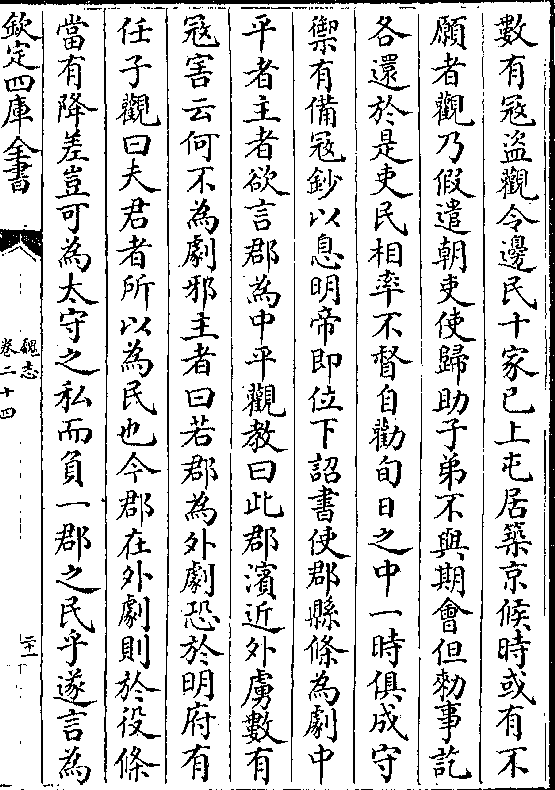 數有寇盜觀令邊民十家已上屯居築京候時或有不
願者觀乃假遣朝吏使歸助子弟不與期會但勑事訖
各還於是吏民相率不督自勸旬日之中一時俱成守
禦有備寇鈔以息明帝即位下詔書使郡縣條為劇中
平者主者欲言郡為中平觀教曰此郡濱近外虜數有
冦害云何不為劇邪主者曰若郡為外劇恐於明府有
任子觀曰夫君者所以為民也今郡在外劇則於役條
當有降差豈可為太守之私而負一郡之民乎遂言為
欽定四庫全書
魏志
卷二十四
二十一